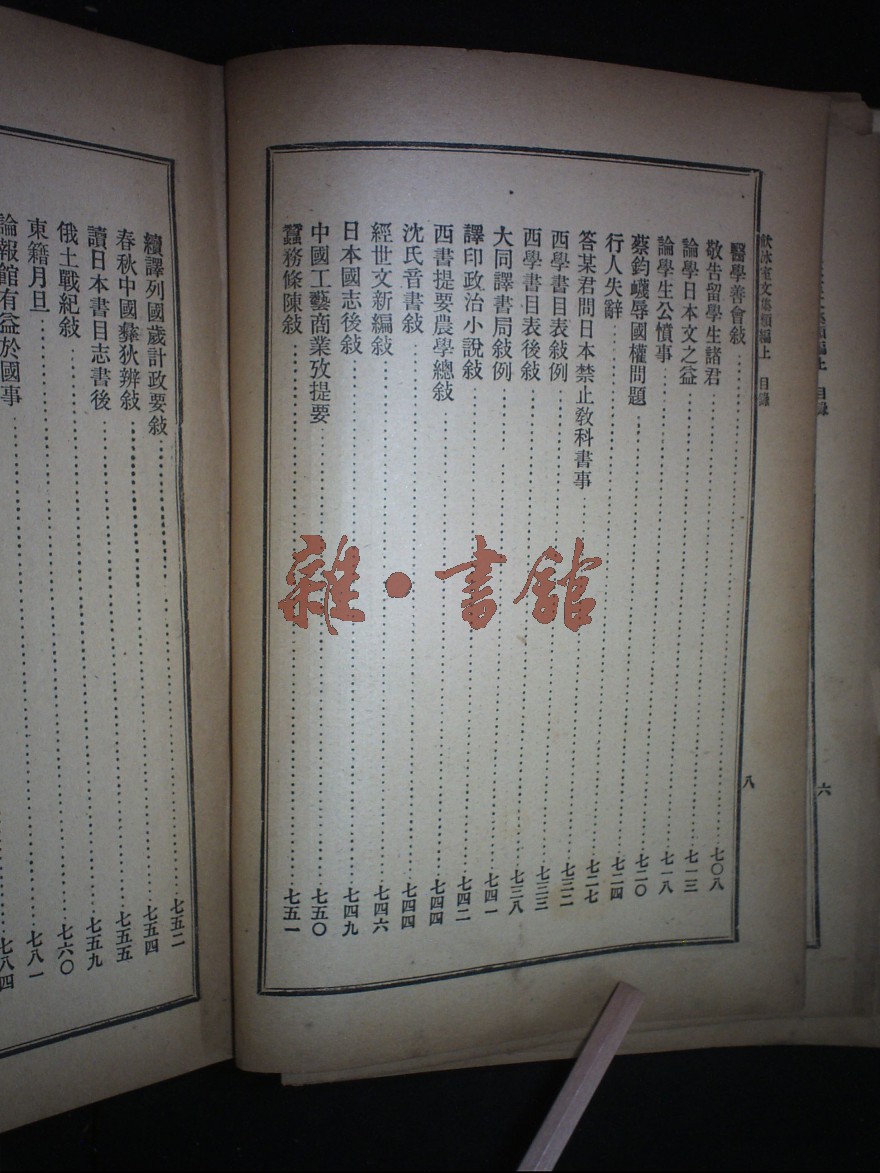 飲冰室文集類編上 目錄 八
醫學善會敍 七〇八
敬告留學生諸君 七一三
論學日本文之益 七一八
論學生公憤事 七二〇
蔡鈞衊辱國權問題 七二四
行人失辭 七二七
答某君問日本禁止敎科書事 七三二
西學書目表敍例 七三三
西學書目表後敍 七三八
大同譯書局敍例 七四一
譯印政治小說敍 七四二
西書提要農學總敍 七四四
沈氏音書敍 七四四
經世文新編敍 七四六
日本國志後敍 七四九
中國工藝商業攷提要 七五〇
蠶務條陳敍 七五一
續譯列國歲計政要敍 七五二
春秋中國彝狄辨敍 七五四
讀日本書目志書後 七五五
俄土戰紀敍 七五九
東籍月旦 七六〇
論報館有益於國事 七八一
七八四
編上 目錄 六
雜·書館